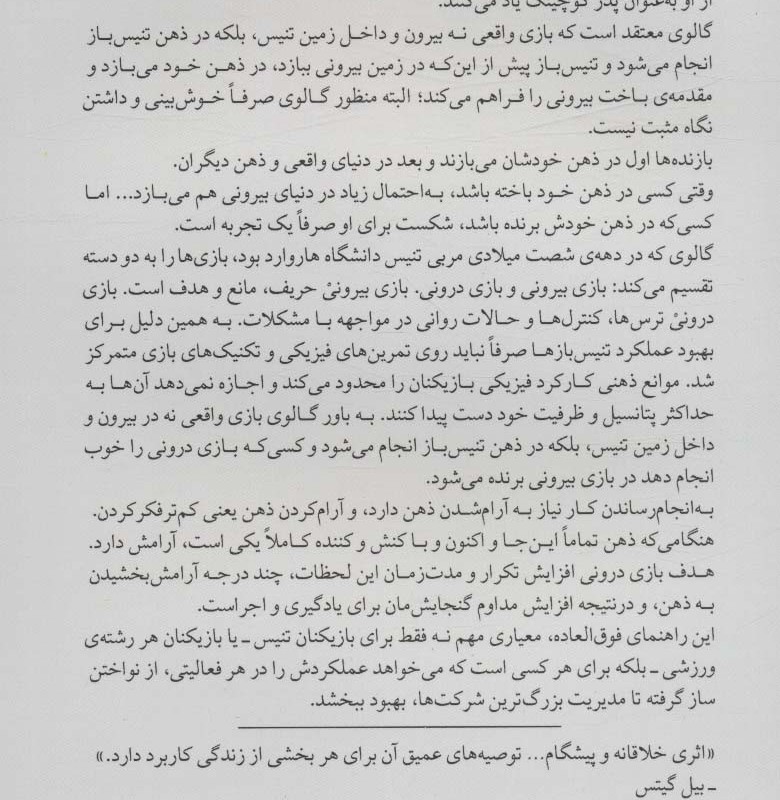 از او به‌عنوان پدر کوچینگ یاد می‌کنند.
گالوی معتقد است که بازی واقعی نه بیرون و داخل زمین تنیس، بلکه در ذهن تنیس‌باز
انجام می‌شود و تنیس‌باز پیش از این‌که در زمین بیرونی ببازد، در ذهن خود می‌بازد و
مقدمه‌ی باخت بیرونی را فراهم می‌کند؛ البته منظور گالوی صرفاً خوش‌بینی و داشتن
نگاه مثبت نیست.
بازنده‌ها اول در ذهن خودشان می‌بازند و بعد در دنیای واقعی و ذهن دیگران.
وقتی کسی در ذهن خود باخته باشد، به‌احتمال زیاد در دنیای بیرونی هم می‌بازد... اما
کسی‌که در ذهن خودش برنده باشد، شکست برای او صرفاً یک تجربه است.
گالوی که در دهه‌ی شصت میلادی مربی تنیس دانشگاه هاروارد بود، بازی‌ها را به دو دسته
تقسیم می‌کند: بازی بیرونی و بازی درونی. بازی بیرونیْ حریف، مانع و هدف است. بازی
درونیْ ترس‌ها، کنترل‌ها و حالات روانی در مواجهه با مشکلات. به همین دلیل برای
بهبود عملکرد تنیس‌بازها صرفاً نباید روی تمرین‌های فیزیکی و تکنیک‌های بازی متمرکز
شد. موانع ذهنی کارکرد فیزیکی بازیکنان را محدود می‌کند و اجازه نمی‌دهد آن‌ها به
حداکثر پتانسیل و ظرفیت خود دست پیدا کنند. به باور گالوی بازی واقعی نه در بیرون و
داخل زمین تنیس، بلکه در ذهن تنیس‌باز انجام می‌شود و کسی‌که بازی درونی را خوب
انجام دهد در بازی بیرونی برنده می‌شود.
به‌انجام‌رساندن کار نیاز به آرام‌شدن ذهن دارد، و آرام‌کردن ذهن یعنی کم‌تر‌فکرکردن.
هنگامی‌که ذهن تماماً این‌جا و اکنون و با کنش و کننده کاملاً یکی است، آرامش دارد.
هدف بازی درونی افزایش تکرار و مدت‌زمان این لحظات، چند درجه آرامش‌بخشیدن
به ذهن، و درنتیجه افزایش مداوم گنجایش‌مان برای یادگیری و اجراست.
این راهنمای فوق‌العاده، معیاری مهم نه فقط برای بازیکنان تنیس ـ یا بازیکنان هر رشته‌ی
ورزشی ـ بلکه برای هر کسی است که می‌خواهد عملکردش را در هر فعالیتی، از نواختن
ساز گرفته تا مدیریت بزرگ‌ترین شرکت‌ها، بهبود ببخشد.
«اثری خلاقانه و پیشگام... توصیه‌های عمیق آن برای هر بخشی از زندگی کاربرد دارد.»
ـ بیل گیتس